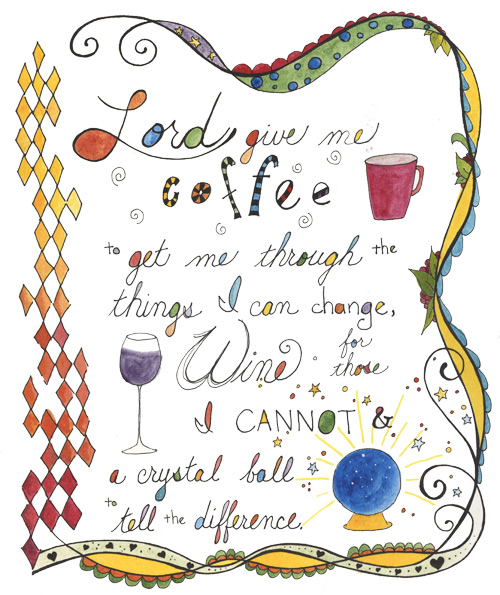 Lord give me
coffee
to get me through the
things I can change,
Wine for those
I CANNOT &
a crystal ball
to tell the difference.